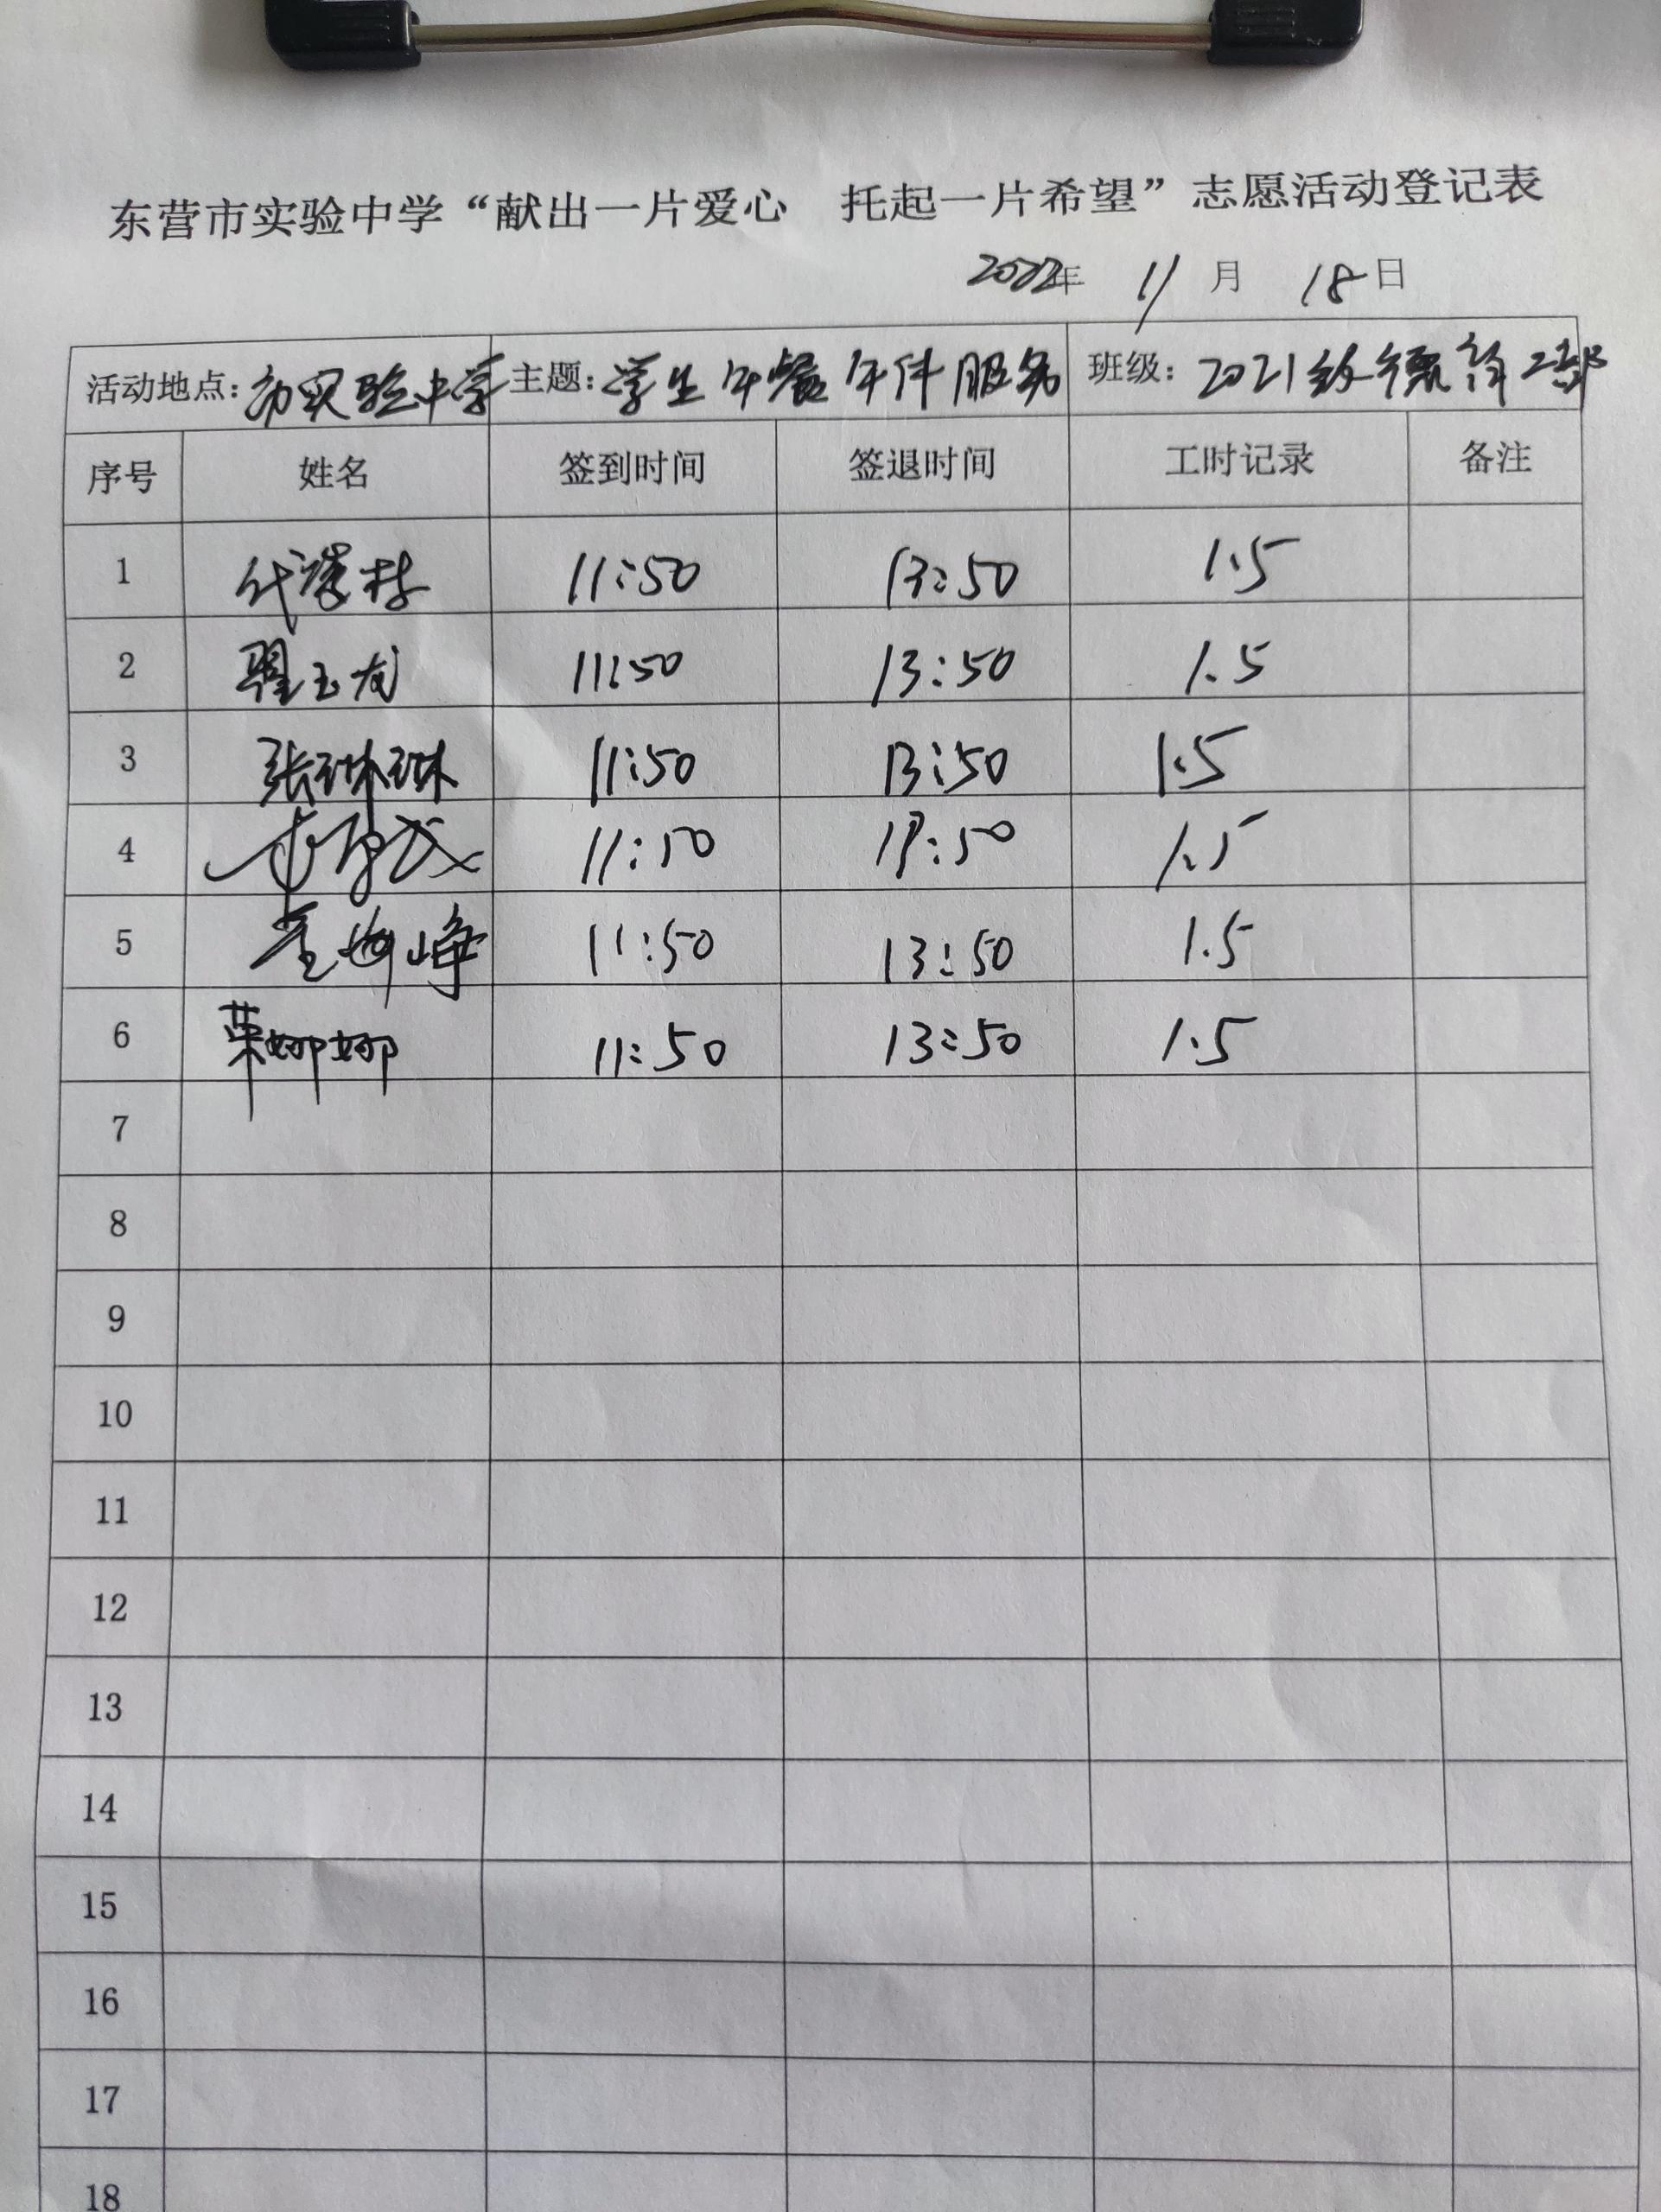 东营市实验中学“献出一片爱心 托起一片希望”志愿活动登记表
2022年 11月 18日
活动地点：市实验中学 主题：学生午餐午休服务 班级：2021级德育2部
序号 姓名 签到时间 签退时间 工时记录 备注
1 11:50 13:50 1.5
2 翟玉龙 11:50 13:50 1.5
3 张琳琳 11:50 13:50 1.5
4 11:50 13:50 1.5
5 11:50 13:50 1.5
6 荣娜娜 11:50 13:50 1.5
7
8
9
10
11
12
13
14
15
16
17
18